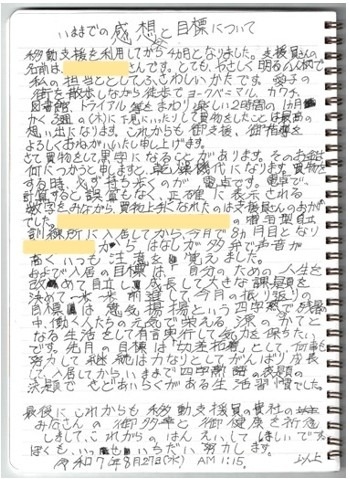 いままでの感想と目標について
移動支援を利用してから4カ月となりました。支援員さんの
名前は さんです。とても、やさしく明るい人柄で
私の担当としてふさわしいかたです。
街を散歩しながら徒歩でヨークベニマル、カワチ、
図書館、トライアル等をまわり楽しい2時間の
(木)に 買物をしたことは最高の
想い出になります。これからも御支援、御指導を
よろしくおねがいいたし申し上げます。
さて買物をして黒字になることがあります。そのお金は
何につかうと申しますと、 になります。買物を
する時、必ず持ち歩くのが、電卓です。電卓で、
計算すると誤算もなく、正確に表示される
数字をみながら、買物上手になれたのは支援員さんのおかげ
でした。 の宿泊型自立
訓練所に入居してから、今月で8ヵ月目となり
から はなしが多弁で声音が
高くいつも注意を 覚えました。
および入居の目標は「自分のための人生を
改めて自立し成長して大きな課題を
決めて 前進して今月の振り返り
目標は意気揚揚という四字熟
中、働く人たちの元気で栄える源のかてと
なる生活として有言実行して気力を保ちたい
です。先月の目標は として何事も
努力して継続は力なりとしてがんばり成長
して入居してからいままで四字熟語の表題の
決題で さとあいらくがある生活習慣でした。
最後にこれからも移動支援員の貴社の
みなさんの御多幸と御健康を祈念
しまして、これからのはんえいしてほしいです。
ぼくも、いっぱい努力します。
令和7年8月27日(水) AM 1:15。 以上